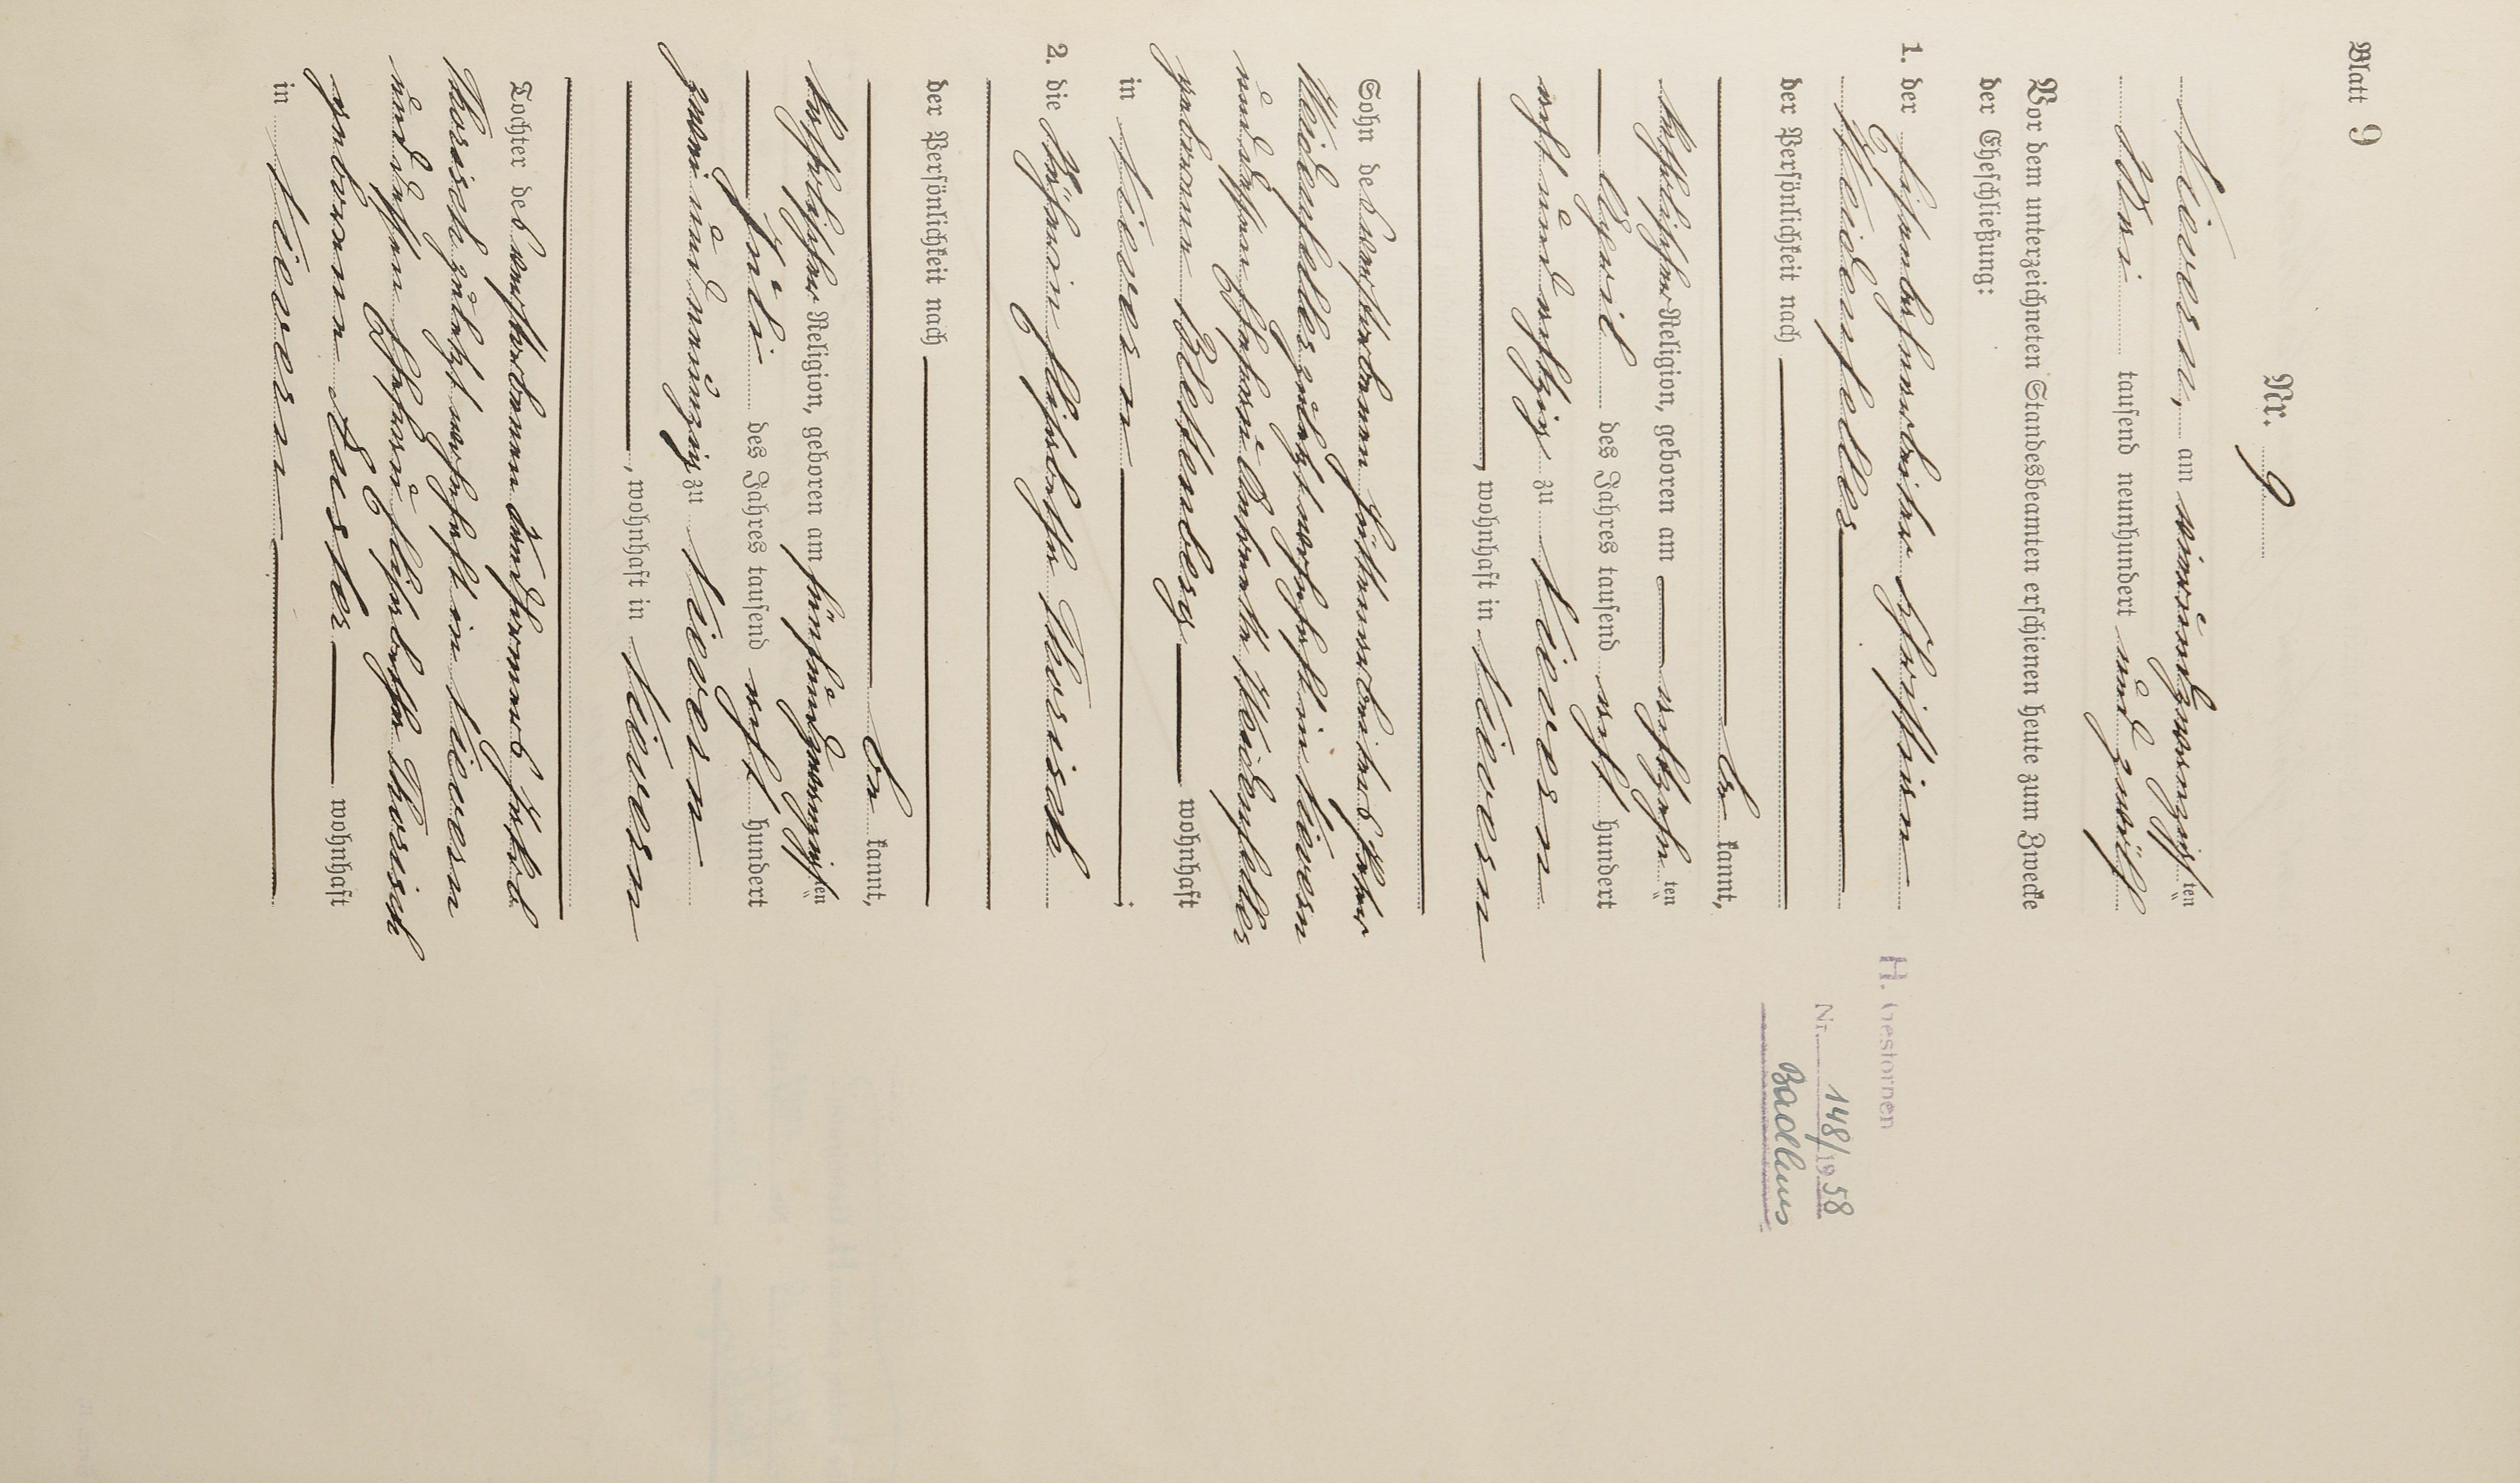 Blatt 9
Nr. 9
Nievern, am vierundzwanzigsten
Mai tausend neunhundert und zwölf
Vor dem unterzeichneten Standesbeamten erschienen heute zum Zwecke
der Eheschließung:
1. der Christian
Weidenfeller
der Persönlichkeit nach
be kannt,
katholischer Religion, geboren am achtzehn ten
April des Jahres tausend acht hundert
acht und achtzig zu Nievern
, wohnhaft in Nievern
Sohn des verstorbenen Hüttenarbeiters Peter
Weidenfeller zuletzt wohnhaft in Nievern
und dessen Ehefrau Weidenfeller
geborenen wohnhaft
in Nievern .
2. die Näherin Elisabetha Thorisch
der Persönlichkeit nach
be kannt,
katholischer Religion, geboren am fünfundzwanzigsten
Juli des Jahres tausend acht hundert
zwei und neunzig zu Nievern
, wohnhaft in Nievern
Tochter des verstorbenen Jakob
Thorisch zuletzt wohnhaft in Nievern
und dessen Ehefrau Elisabetha Thorisch
geborenen wohnhaft
in Nievern
H. Gestorben
Nr. 148/1958